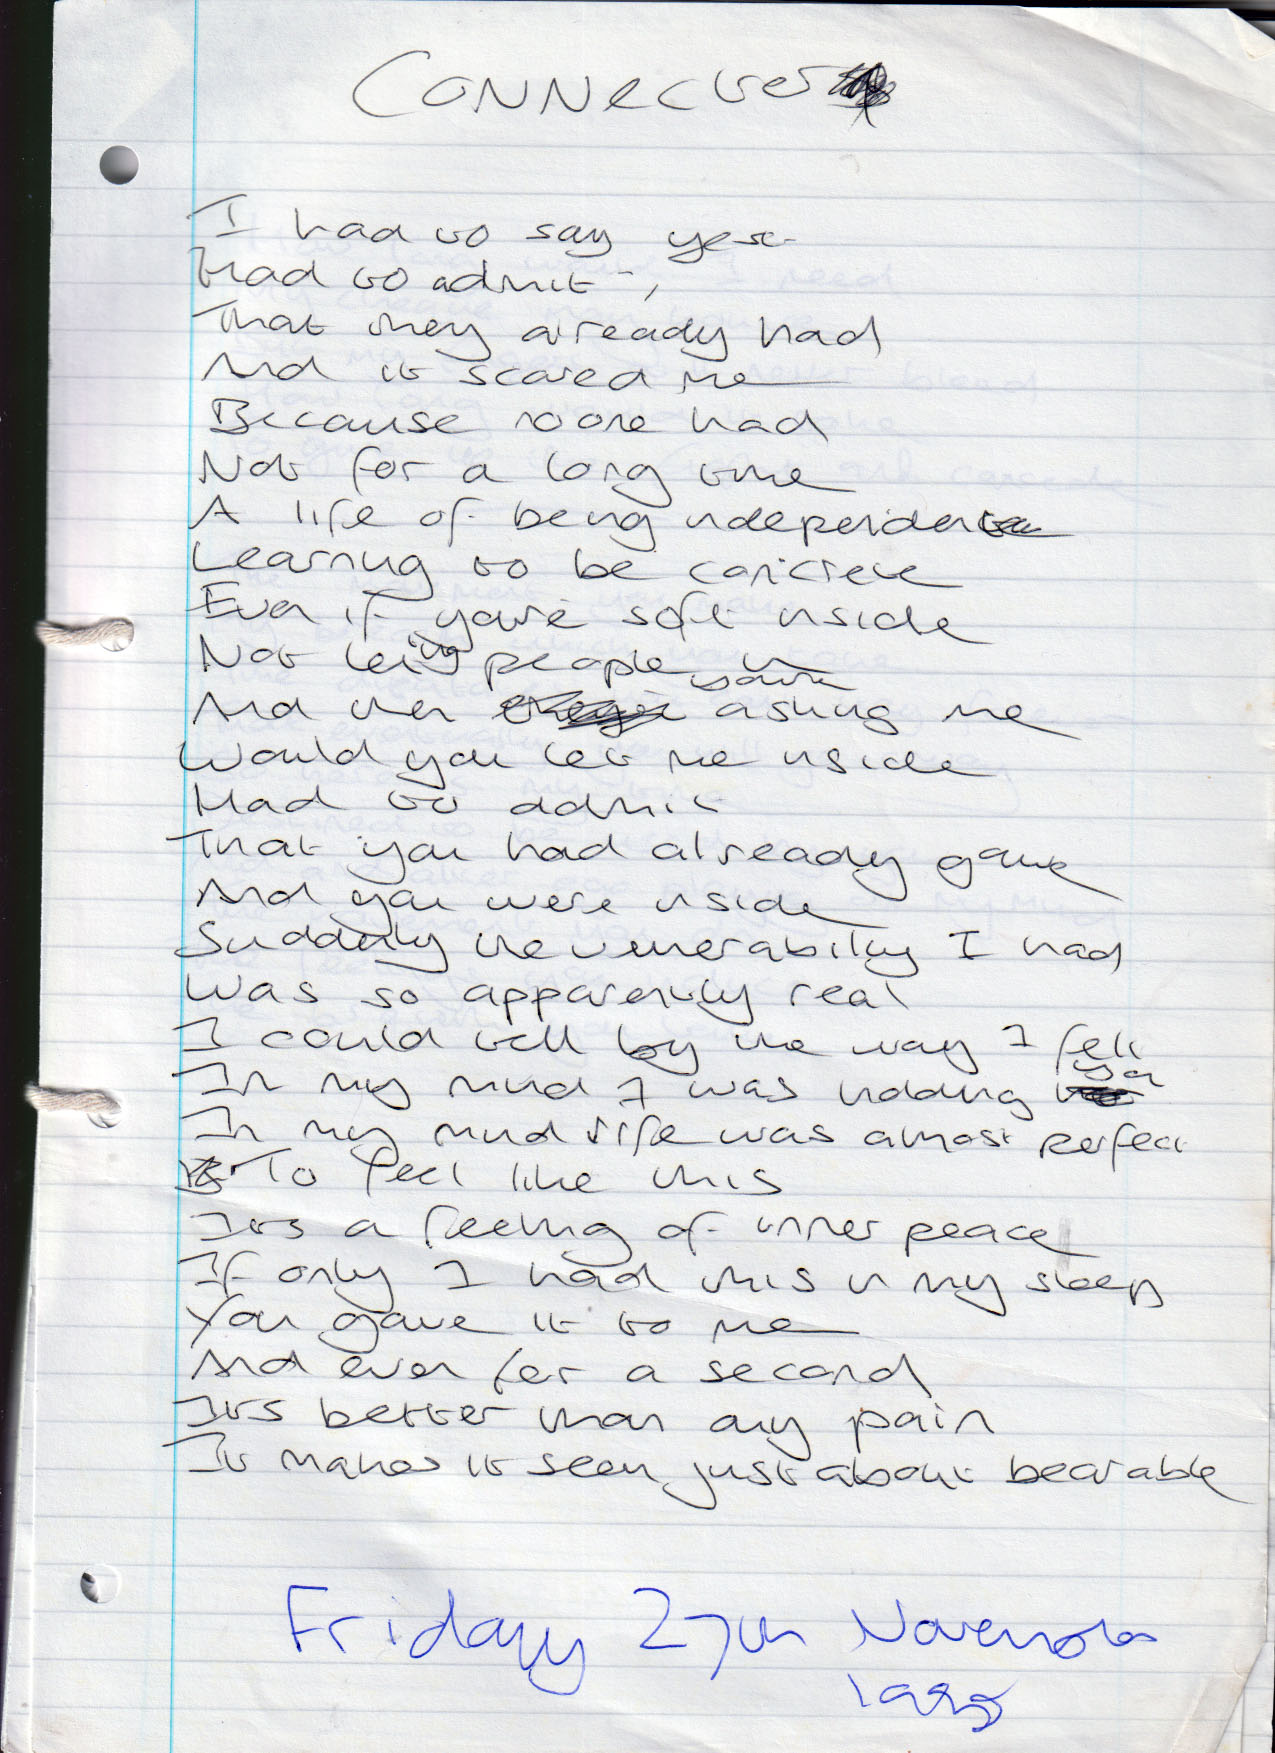 Connected
I had to say yes
Had to admit,
That they already had
And it scared me
Because no one had
Not for a long time
A life of being independent
Learning to be concrete
Even if you're soft inside
Not letting people in
And then you're asking me
Would you let me inside
Had to admit
That you had already gave
And you were inside
Suddenly the venerability I had
Was so apparently real
I could tell by the way I felt
In my mind I was holding you
In my mind life was almost perfect
To feel like this
It's a feeling of inner peace
If only I had this in my sleep
You gave it to me
And even for a second
It's better than any pain
It makes it seem just about bearable
Friday 27th November